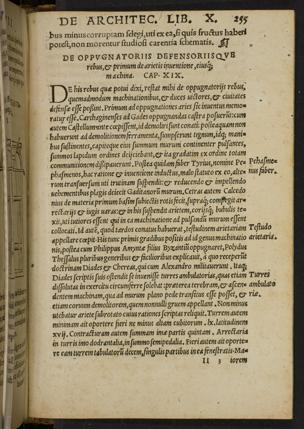 DE ARCHITEC. LIB. X. 255
bus minus corruptam scđeçi, uti ex ea, si quis fructus haberi
potest, non morentur studiosi carentia schematis.
DE OPPVGNATORIIS DEFENSORIISQVE
rebus, & primum de arietis inuentione, eiusq;
machina. CAP. XIX.
DE his rebus quæ potui dixi, restat mihi de oppugnatoriis rebus,
quemadmodum machinationibus, & duces uictores, & ciuitates
defensæ esse possint. Primum ad oppugnationes aries sic inuentus memo-
ratur esse. Carthaginenses ad Gades oppugnandas castra posuerūt: cum
autem Castellum ante cœpissent, id demoliri sunt conati: postea quam non
habuerunt ad demolitionem ferramenta, sumpserunt tignum, idq; mani-
bus sustinentes, capiteque eius summum murum continenter pulsantes,
summos lapidum ordines deiiciebant, & ita gradatim ex ordine totam
communitionem dissipauerunt. Postea quidam faber Tyrius, nomine Pe-
phasmenos, hac ratione & inuentione inductus, malo statuto ex eo, alte-
rum transuersum uti trutinam suspendit: & reducendo & impellendo
uehementibus plagis deiecit Gaditanorū murum, Cetras autem Calcedo
nius de materia primum basim subiectis rotis fecit, supraq; compegit ar-
rectariis & iugis uaras, & in his suspendit arietem, coriisq; bubulis te-
xit, uti tutiores essent qui in ea machinatione ad pulsandū murum essent
collocati. Id autē, quòd tardos conatus habuerat, testudinem arietariam
appellare cœpit. His tunc primis gradibus positis ad id genus machinatio
nis, postea cum Philippus Amyntæ filius Byzantiū oppugnaret, Polydus
Thessalus pluribus generibus & facilioribus explicauit, à quo receperūt
doctrinam Diades & Chereas, qui cum Alexandro militauerunt. Itaq;
Diades scriptis suis ostendit se inuenisse turres ambulatorias, quas etiam
dissolutas in exercitu circumferre solebat: præterea terebram, & ascen-
dentem machinam, qua ad murum plano pede transitus esse posset, &
etiam coruum demolitorem, quem nonnulli gruem appellant. Non minus
utebatur ariete subrotato cuius rationes scriptas reliquit. Turrem autem
minimam ait oportere fieri ne minus altam cubitorum .lx. latitudinem
xvij. Contracturam autem summam imæ partis quintam. Arrectaria
in turris imo dodrantalia, in summo semipedalia. Fieri autem ait oporte-
re eam turrem tabulatorū decem, singulis partibus in ea fenestratis. Ma-
Pephasme-
nos faber.
Testudo
arietaria.
Turres
ambulato
riæ.
II 3 iorem